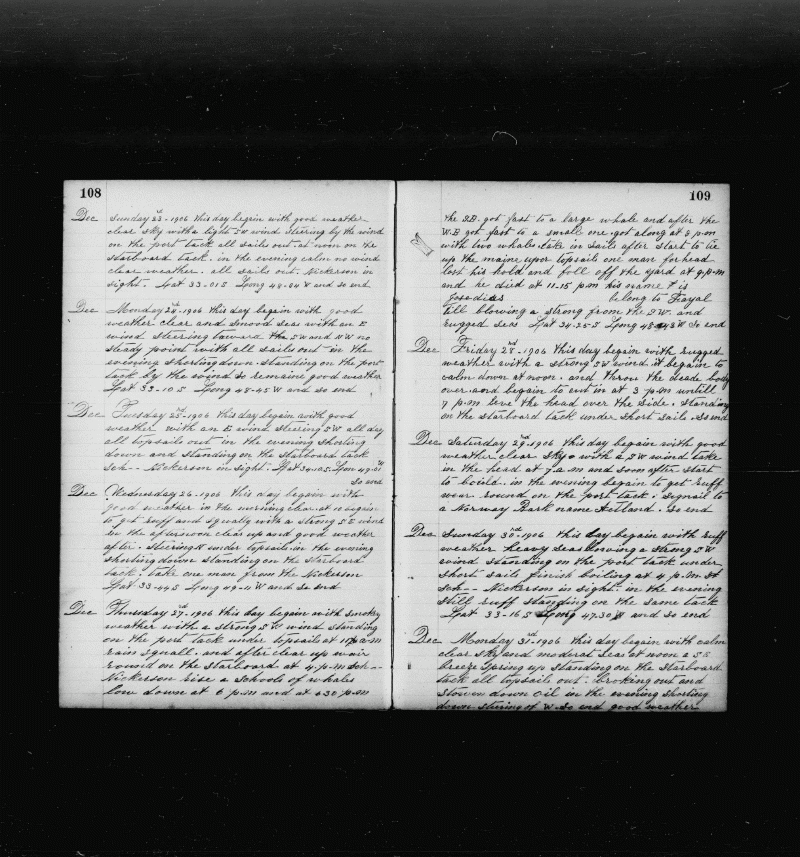 108
Dec Sunday 23rd - 1906 this day begain with good weather
clear sky with a light SW wind Steering by the wind
on the port tack all sails out. at noon on the
Starboard tack. in the evening calm no wind
clear weather. all sails out. Nickerson in
sight. Lat 33-01 S Long 48-04 W and so end
Dec Monday 24th. 1906 this day begain with good
weather clear and smood seas with an E
wind Steering toward the SW and WW no
steady point with all sails out in the
evening shorting down. standing on the port
tack by the wind so remaine good weather
Lat 33-10 S Long 48-45 W and so end
Dec Tuesday 25rd. 1906 this day begain with good
weather with an E wind Steering SW all day
all topsails out in the evening shorting
down and Standing on the Starboard tack
Sch-- Nickerson in sight. Lat 34-05 Lon 49-
So end
Dec Wednesday 26. 1906 this day begain with
good weather in the morning clear. at 10 begain
to get ruff and squally with a strong SE wind
in the afternoon clear up and good weather
after. Steering N under topsails in the evening
shorting down Standing on the Starboard
tack. take one man from the Nickerson
Lat 33-44 S Long 49-11 W and so end
Dec Thursday 27rd. 1906 this day begain with smoky
weather with a strong SW wind standing
on the port tack under topsails at 10 a.m
rain squall. and after clear up wair
round on the Starboard at 4. p.m Sch--
Nickerson rise a schools of whales
low down at 6 p.m and at 6 30 p.m
109
the S.B. got fast to a large whale and after the
W.B got fast to a small one. got along at 8 p.m
with two whale. take in sails after start to tie
up the maine uper topsails one man forhead
lost his hold and foll off the yard at 9 p.m
and he died at 11.15 p.m his name is
Jose dias belong to Fayal
till blowing a strong from the SW. and
rugged seas Lat 34-25 S Long 48-43 W So end
Dec Friday 28. 1906 this day begain with rugged
weather with a strong SW wind. it begain to
calm down at noon. and thron the deade body
over. and begain to cut in at 3 p.m untill
7 p.m have the head over the side. Standing
on the starboard tack under short sails. So end
Dec Saturday 29rd. 1906 this day begain with good
weather clear sky with a SW wind take
in the head at 7 a.m and soon after start
to boild. in the evening begain to get ruff
wear round on the port tack. signail to
a Norway Bark name Hetland. So end
Dec Sunday 30rd. 1906 this day begain with ruff
weather heavy seas blowing a strong SW
wind standing on the port tack under
short sails finish boiling at 4 p.m St
Sch-- Nickerson in sight. in the evening
still ruff standing on the same tack
Lat 33-16 S Long 47.30 W and so end
Dec Monday 31rd. 1906 this day begain with calm
clear sky and moderat seas at noon a SE
breeze spring up standing on the Starboard
tack all topsails out. broking out and
Stowen down oil in the evening shorting
down steering of W. So end good weather